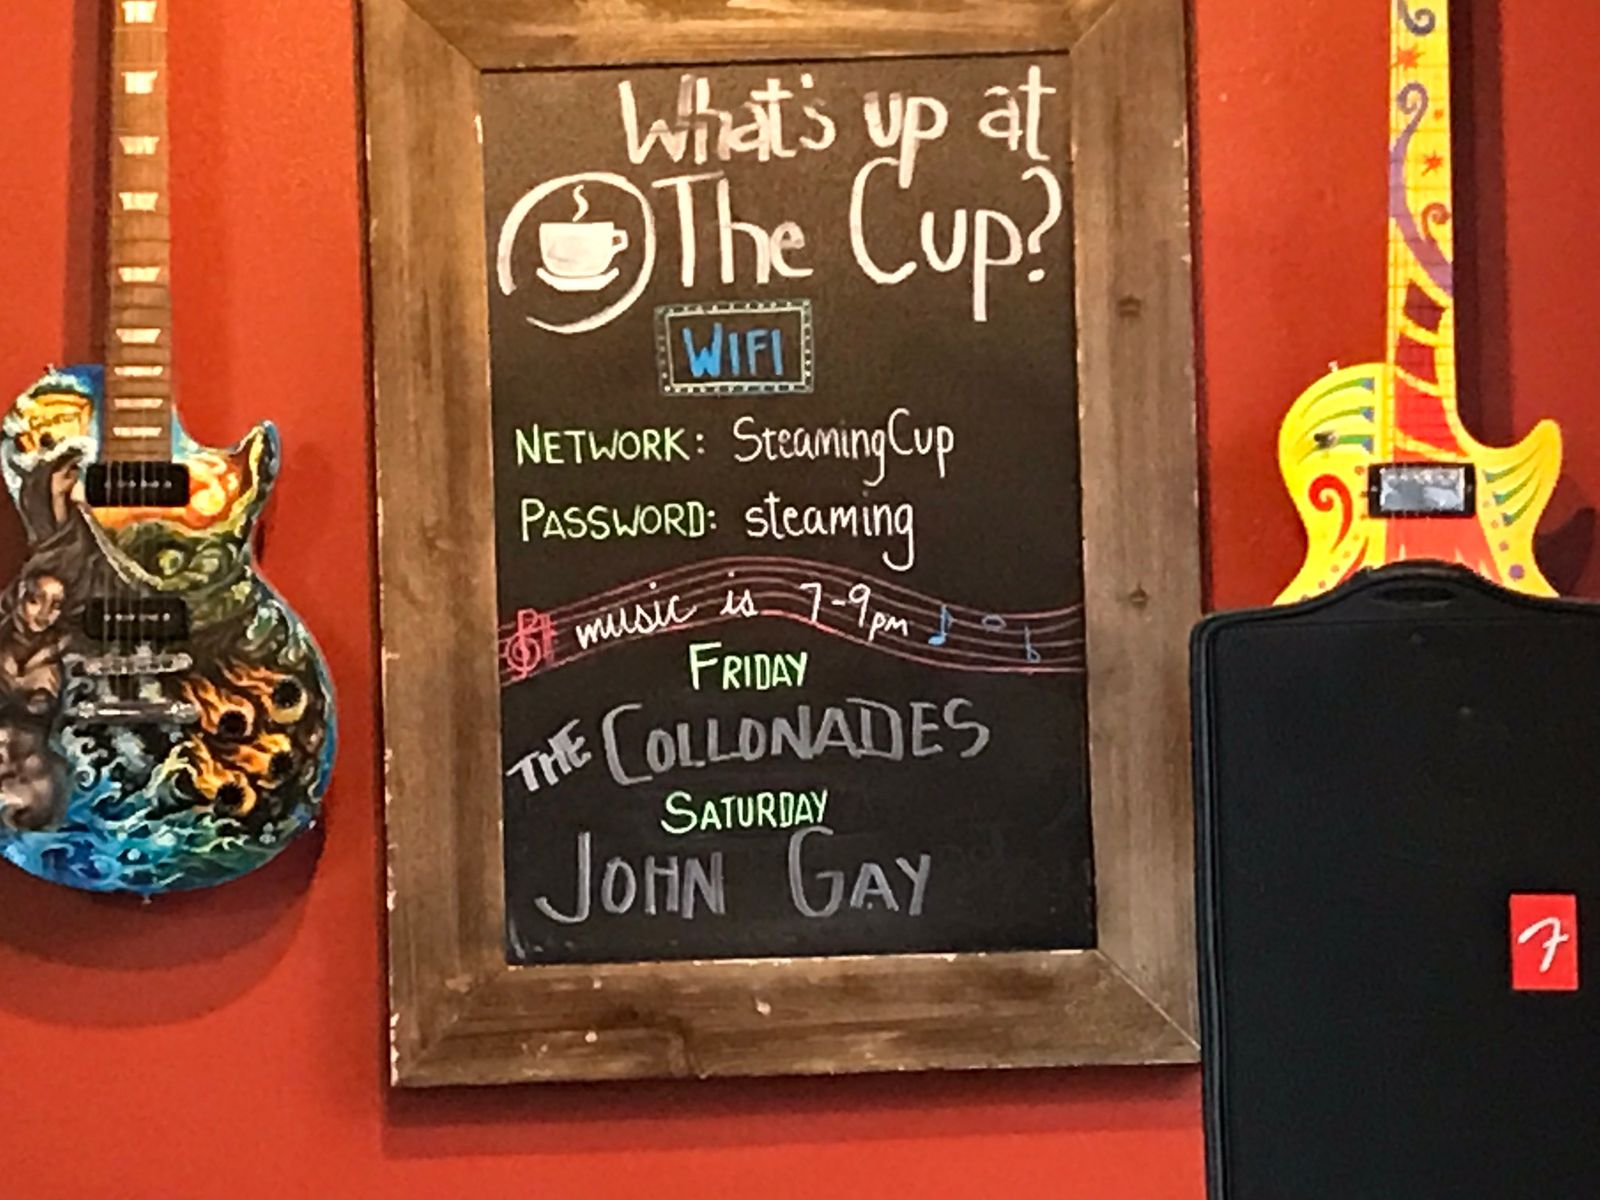 What's up at
The Cup?
WIFI
NETWORK: SteamingCup
PASSWORD: steaming
music is 7-9pm
FRIDAY
THE COLLONADES
SATURDAY
JOHN GAY
F